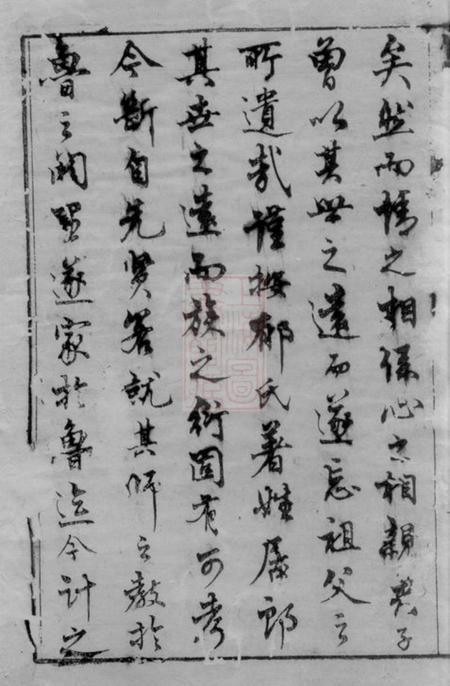 矣然而情之相係心之相親其子
曾以其世之遠而遂忘祖父之
所遺哉謹按郁氏著姓居郎
其世之遠而族之衍固有可考
今斷自先賢若就其師之教於
魯之闕里遂家於魯迄今計之